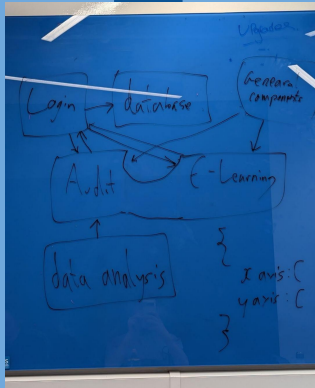 Update
Login
database
General
components
Audit
E-Learning
data analysis
{
x axis: [
y axis: [
}